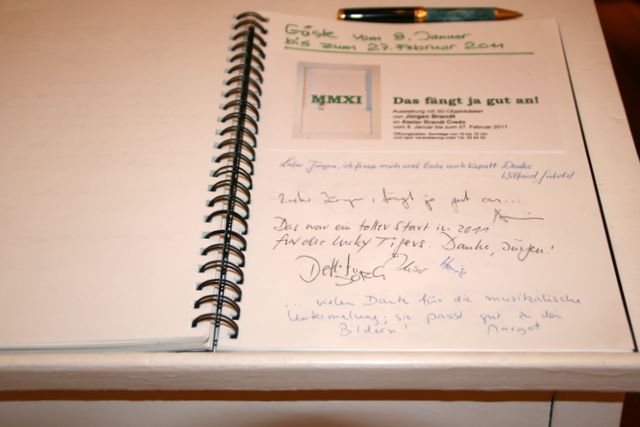 Gäste vom 8. Januar
bis zum 27. Februar 2011
MMXI
Das fängt ja gut an!
Ausstellung mit 50 Objektkästen
von Jürgen Brandt
im Atelier Brandt Credo
vom 8. Januar bis zum 27. Februar 2011
Lieber Jürgen, ich freue mich und lache mich kaputt. Danke
Lieber Jürgen, fängt ja gut an...
Das war ein toller Start in 2011
für die Lucky Tigers. Danke, Jürgen!
... vielen Dank für die musikalische
Untermalung; sie passt gut zu den
Bildern! Margot